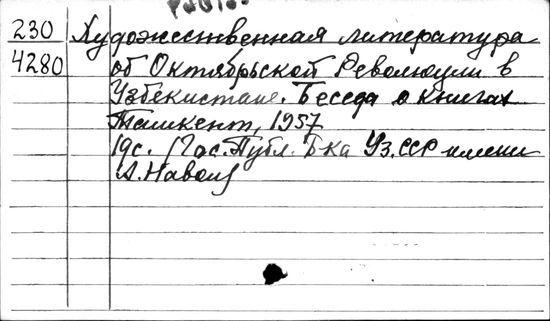 230 Художественная литература
4280 об Октябрьской Революции в
Узбекистане. Беседа о книгах
Ташкент, 1957
19с. (Гос. Публ. Б-ка Уз.ССР имени
А. Навои)